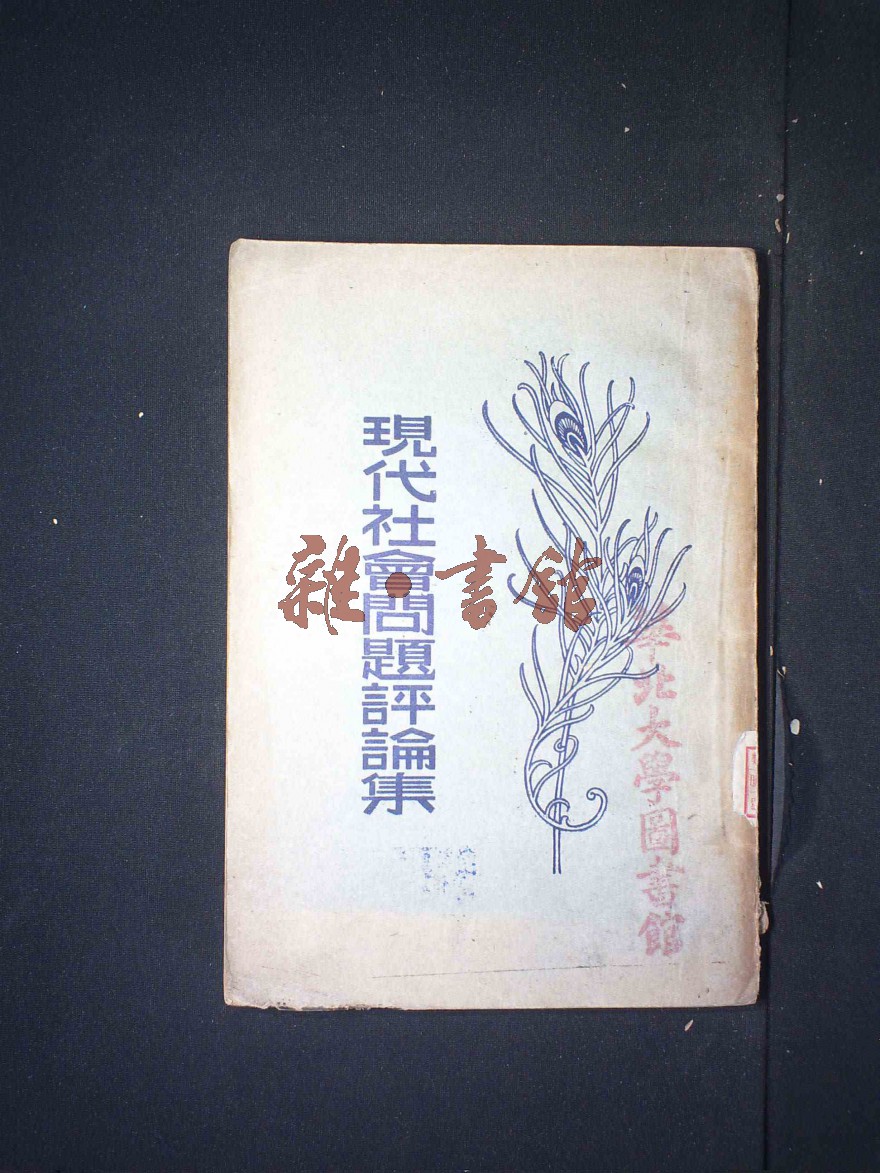 現代社會問題評論集
雜·書館
華北大學圖書館